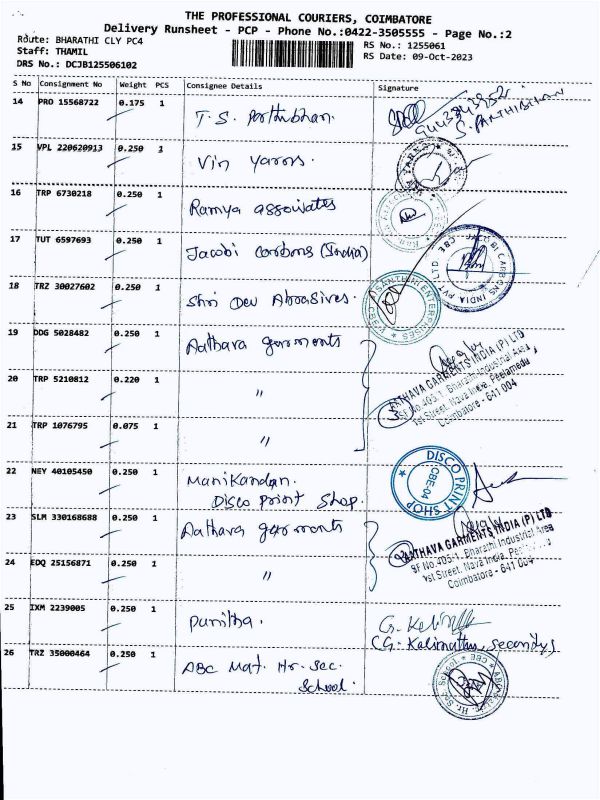 THE PROFESSIONAL COURIERS, COIMBATORE
Delivery Runsheet - PCP - Phone No.:0422-3505555 - Page No.:2
Route: BHARATHI CLY PC4
RS No.: 1255061
Staff: THAMIL
RS Date: 09-Oct-2023
DRS No.: DCJB125506102
S No Consignment No Weight PCS Consignee Details Signature
14 PRO 15568722 0.175 1 T. S. Parthibhan.
S. PARTHIBHAN
15 VPL 220620913 0.250 1 Vin Yarns.
16 TRP 6730218 0.250 1 Ramya associates
17 TUT 6597693 0.250 1 Jacobi Carbons (India)
JACOBI CARBONS INDIA PVT LTD CBE
18 TRZ 30027602 0.250 1 Shri Dev Abrasives.
SANTHIH ENTERPRISES
19 DDG 5028482 0.250 1 Aathava garments
AATHAVA GARMENTS INDIA (P) LTD
SF No.405/1, Bharathi Industrial Area
1st Street, Nava India, Peelamedu
Coimbatore - 641 004
20 TRP 5210812 0.220 1 "
21 TRP 1076795 0.075 1 "
22 NEY 40105450 0.250 1 Manikandan.
Disco Print Shop.
DISCO PRINT SHOP
CBE-04
23 SLM 330168688 0.250 1 Aathava garments
AATHAVA GARMENTS INDIA (P) LTD
SF No.405/1, Bharathi Industrial Area
1st Street, Nava India,
Coimbatore - 641 004
24 EDQ 25156871 0.250 1 "
25 IXM 2239005 0.250 1 Punitha.
26 TRZ 35000464 0.250 1 ABC Mat. Hr. Sec.
School.